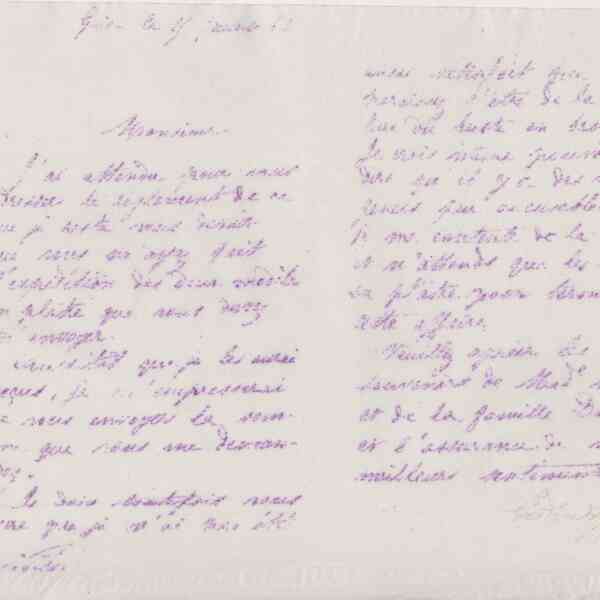 le 15 janvier
Monsieur
J'ai attendu pour vous
adresser le règlement de ce
que je reste vous devoir
que vous m'ayez fait
l'expédition des deux modèles
en plâtre que vous devez
m'envoyer.
Aussitôt que je les aurai
reçus, je m'empresserai
de vous envoyer la som-
me que vous me deman-
dez.
Je dois toutefois vous
dire que je n'ai pas été
aussi satisfait que
l'être de la
du buste en bro
Je crois même pouvoir
dire qu'il y a des
je me contente de la
et n'attends que les
en plâtre pour term
cette affaire.
Veuillez agréer les
souvenirs de Mad.
et de la famille
et l'assurance de
meilleurs sentiments